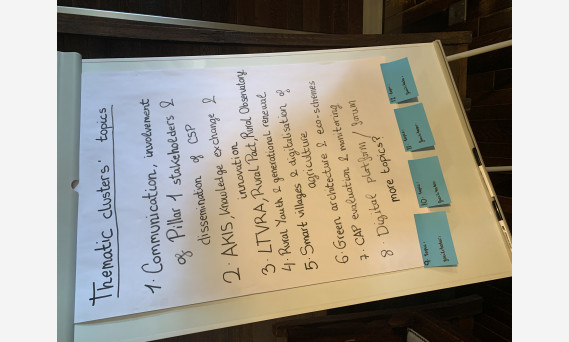 Thematic clusters' topics
1. Communication, involvement
of Pillar 1 stakeholders &
dissemination of CSP
2. AKIS, knowledge exchange &
innovation
3. LTVRA, Rural Pact, Rural Observatory
4. Rural Youth & generational renewal
5. Smart villages & digitalisation of
agriculture
6. Green architecture & eco-schemes
7. CAP evaluation & monitoring
8. Digital platform / forum
more topics?
9. topic
10. topic